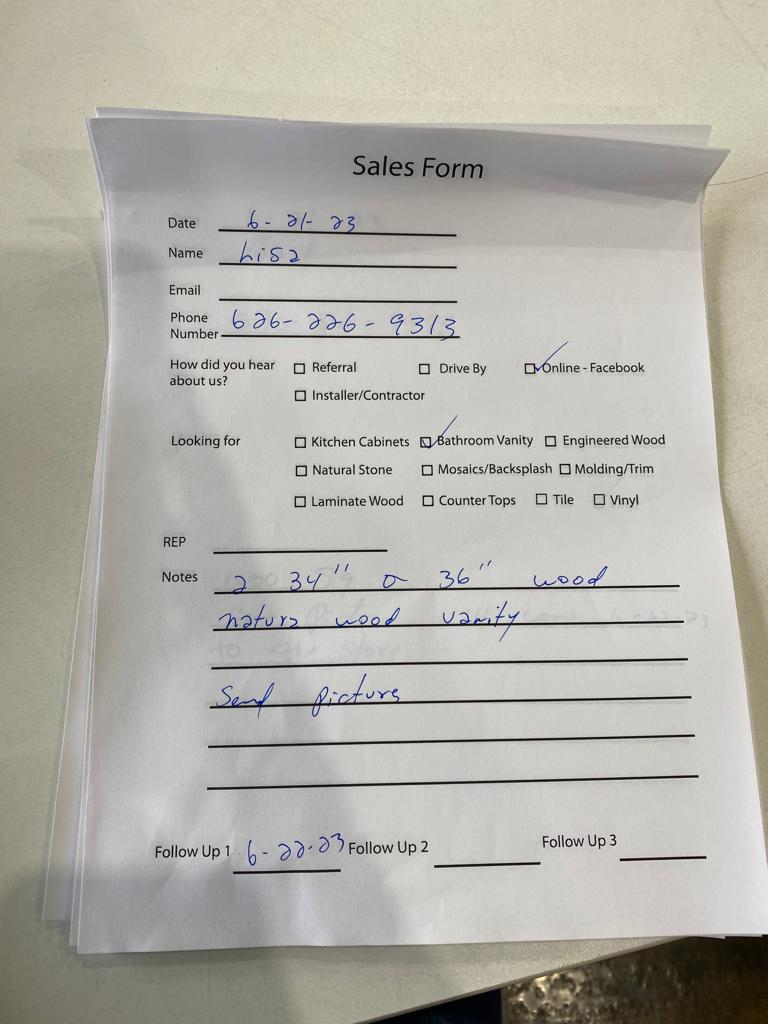 Sales Form
Date 6-21-23
Name Lisa
Email
Phone
Number 626-226-9313
How did you hear about us? ☐ Referral ☐ Drive By ☑ Online - Facebook
☐ Installer/Contractor
Looking for ☐ Kitchen Cabinets ☑ Bathroom Vanity ☐ Engineered Wood
☐ Natural Stone ☐ Mosaics/Backsplash ☐ Molding/Trim
☐ Laminate Wood ☐ Counter Tops ☐ Tile ☐ Vinyl
REP
Notes 2 34" o 36" wood
natura wood vanity
Send picture
Follow Up 1 6-22-23 Follow Up 2 Follow Up 3